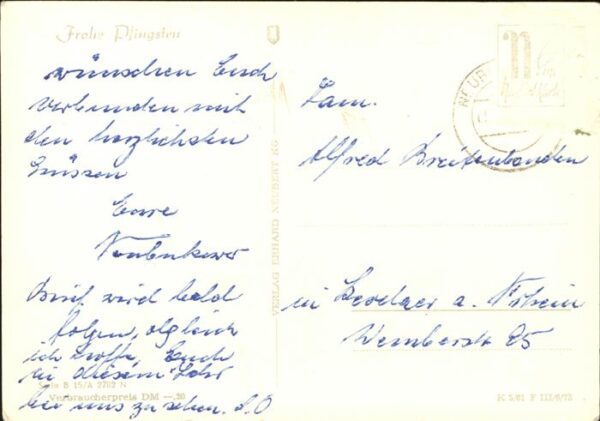 Frohe Pfingsten
wünschen Euch
verbunden mit
den herzlichsten
Grüssen
Eure
Brief wird bald
folgen, obgleich
ich hoffe, Euch
in diesem Jahr
bei uns zu sehen. d. O
Serie B 15/A 2702 N
Verbraucherpreis DM —,20
VERLAG ERHARD NEUBERT KG
NEUR
Fam.
Alfred Breitenbanden
in a. Rhein
25
K 5/61 F III/6/73